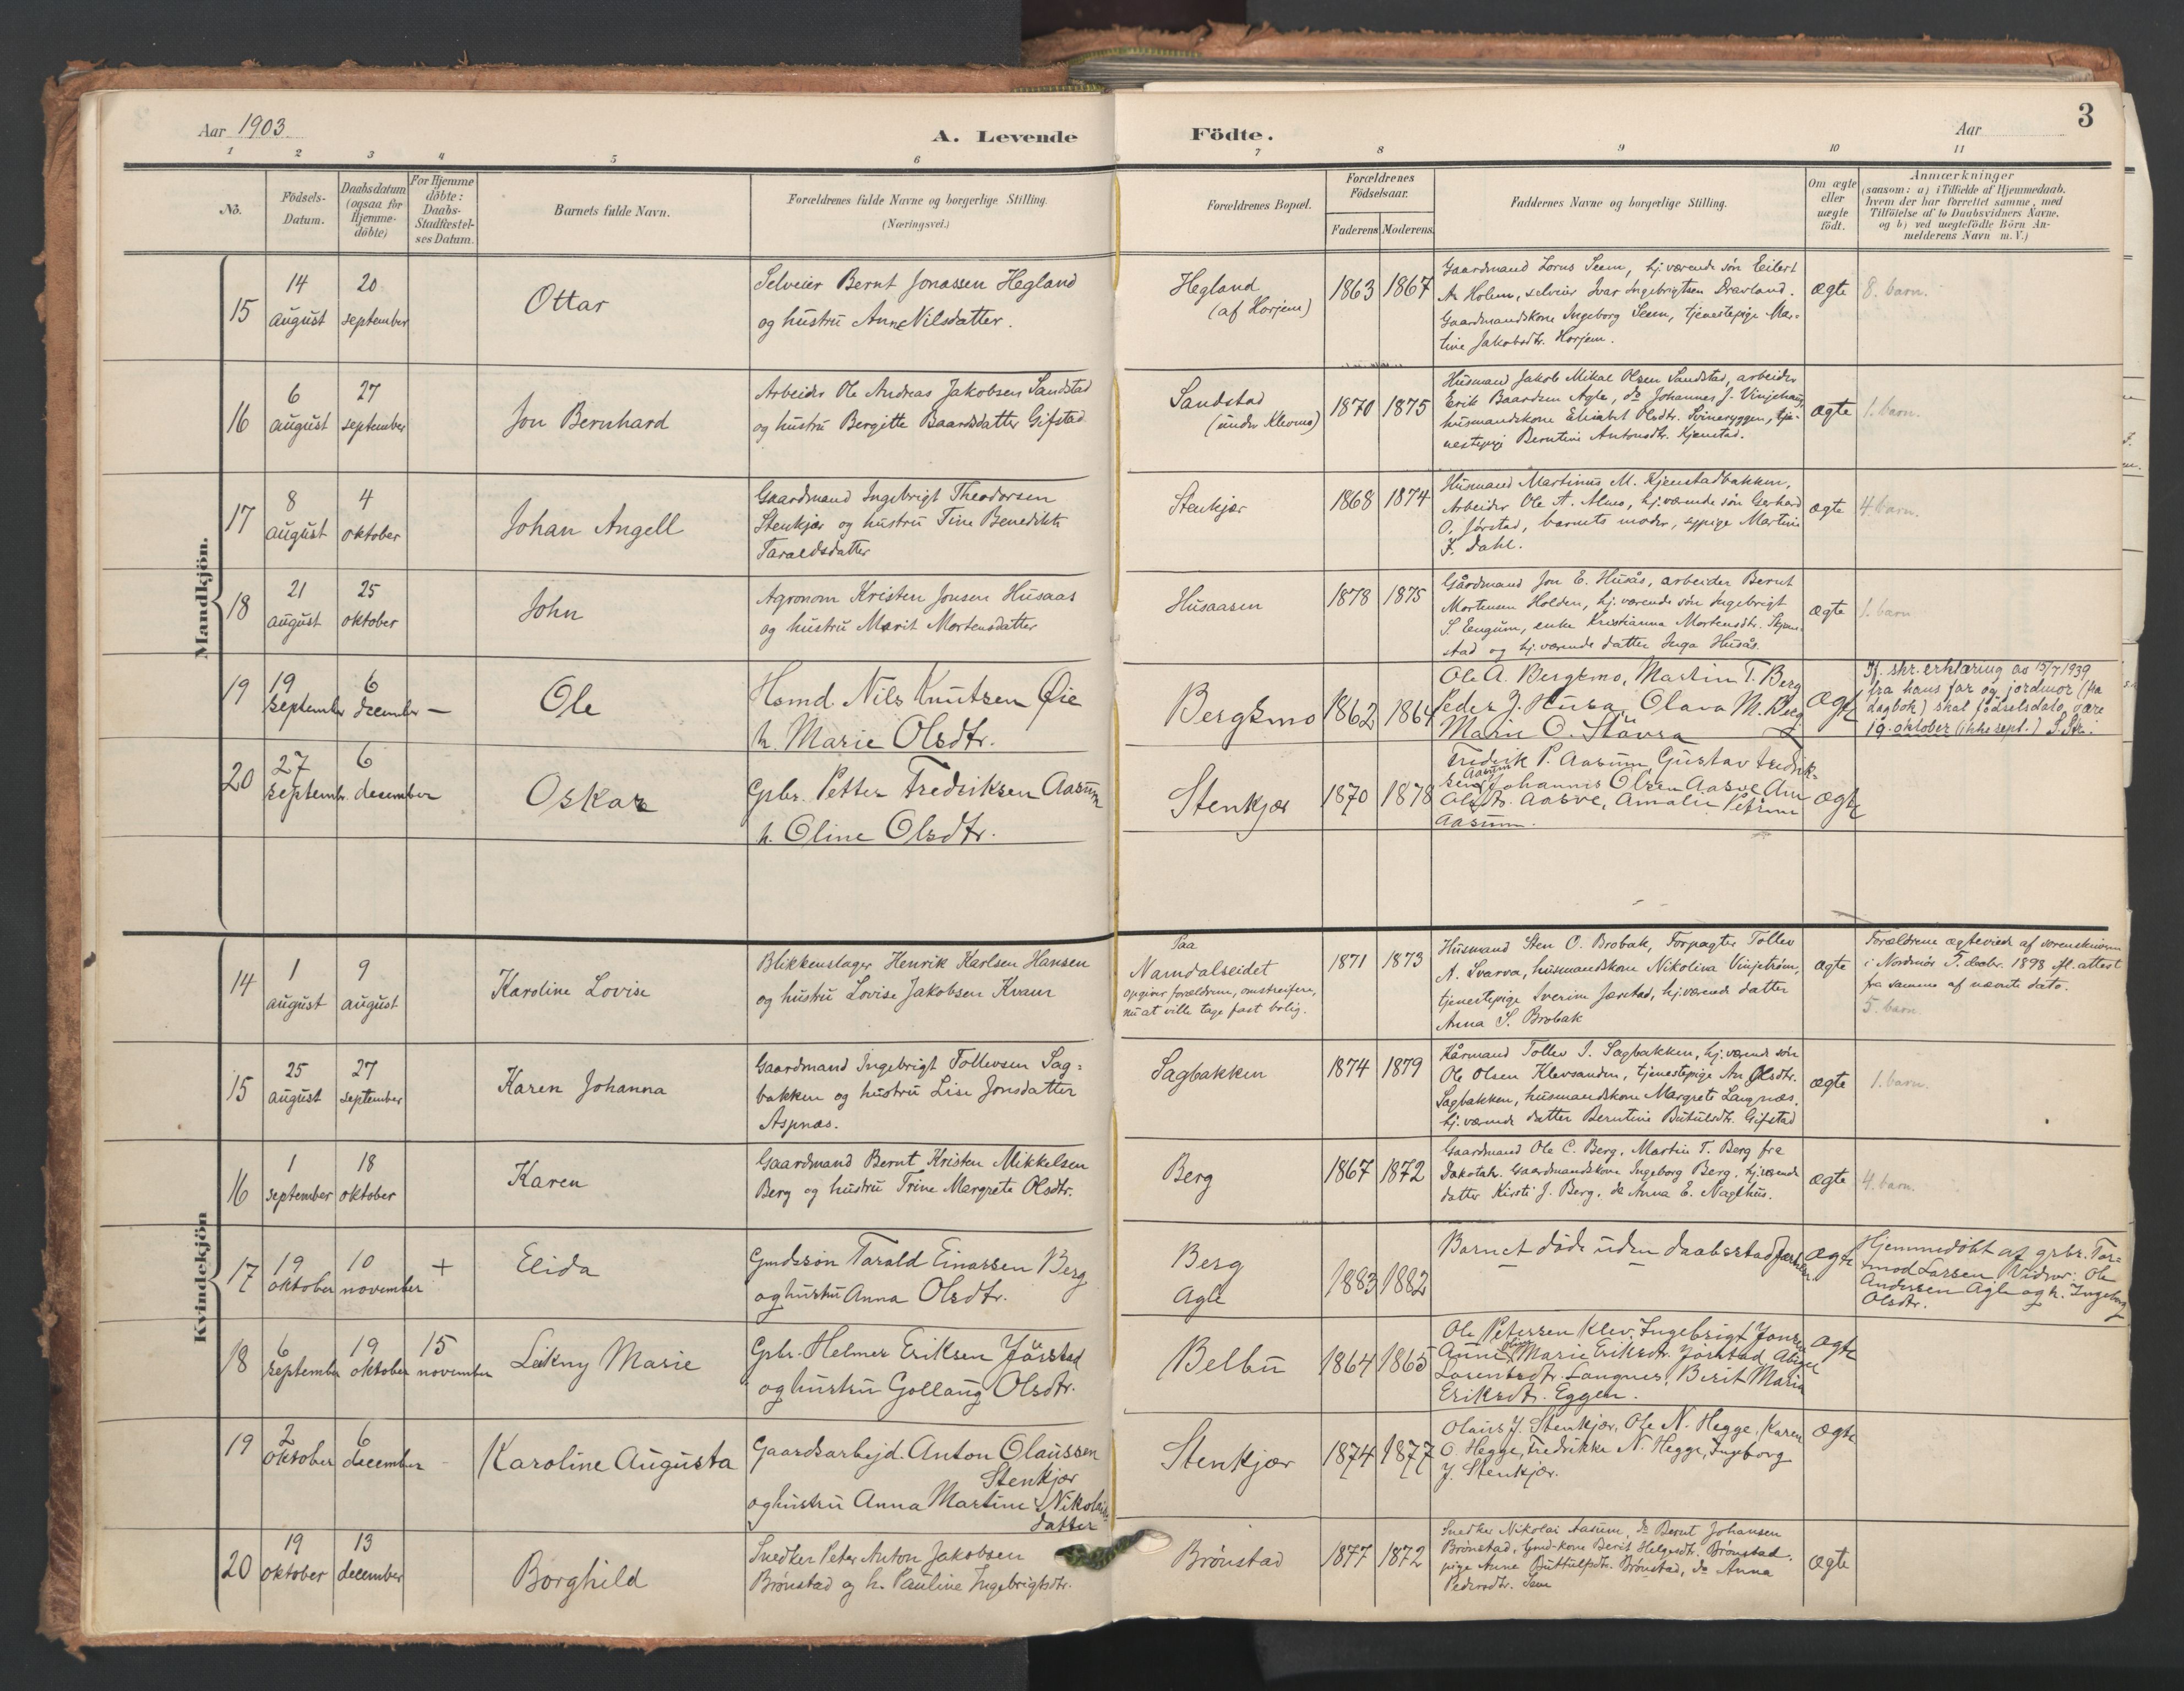 Aar 1903
A. Levende Födte.
Aar
3
1 2 3 4 5 6 7 8 9 10 11
No.
Födsels-
Datum.
Daabsdatum
(ogsaa for
Hjemme-
döbte)
For Hjemme
döbte:
Daabs-
Stadfæstel-
ses Datum.
Barnets fulde Navn.
Forældrenes fulde Navne og borgerlige Stilling.
(Næringsvei.)
Forældrenes Bopæl.
Forældrenes
Födselsaar.
Faderens Moderens
Faddernes Navne og borgerlige Stilling.
Om ægte
eller
uægte
födt.
Anmærkninger
(saasom: a) i Tilfælde af Hjemmedaab.
hvem der har forrettet samme, med
Tilföielse af to Daabsvidners Navne,
og b) ved uægtefödte Börn An-
melderens Navn m. V.)
Mandkjön.
15
14
august
20
september
Ottar
Selveier Bernt Jonassen Hegland
og hustru Anne Nilsdatter.
Hegland
(af Horjem)
1863 1867
Gaardmand Lorns Seem, hj.værende søn Eilert
A. Holem, selveier Ivar Ingebrigtsen Dravland.
Gaardmandskone Ingeborg Seem, tjenestepige Mar-
tine Jakobsdtr. Horjem.
ægte
8. barn.
16
6
august
27
september
Jon Bernhard
Arbeider Ole Andreas Jakobsen Sandstad
og hustru Bergitte Baardsdatter Gifstad
Sandstad
(under Klevmo)
1870 1875
Husmand Jakob Mikal Olsen Sandstad, arbeider
Erik Baardsen Agle, do Johannes J. Vinjehaug,
husmandskone Elisabet Olsdtr. Svineryggen, tje-
nestepig Berntine Antonsdtr. Kjenstad.
ægte
1. barn.
17
8
august
4
oktober
Johan Angell
Gaardmand Ingebrigt Theodorsen
Stenkjær og hustru Tine Benedikte
Taraldsdatter
Stenkjær
1868 1874
Husmand Martinus M. Kjenstadbakken,
Arbeider Ole A. Almo, hj.værende søn Gerhard
O. Jørstad, barnets moder, sypige Martine
F. Dahl.
ægte
4. barn.
18
21
august
25
oktober
John
Agronom Kristen Jonsen Husaas
og hustru Marit Mortensdatter
Husaasen
1878 1875
Gårdmand Jon E. Husås, arbeider Bernt
Mortensen Holden, hj.værende søn Ingebrigt
S. Engum, enke Kristianna Mortensdtr.
stad og hj.værende datter Inga Husås.
ægte
1. barn
19
19
september
6
december
—
Ole
Hsmd. Nils Knutsen Øie
h. Marie Olsdtr.
Bergsmo
1862 1864
Ole A. Bergsmo, Martin T. Berg
Peder J. Husa, Olava M. Berg
Marie O. Stavra
ægte
Jf. skr. erklæring av 15/7 1939
fra hans far og jordmor (fra
dagbok) skal fødselsdato være
19. oktober (ikke sept.)
20
27
septembr.
6
december
Oskar
Gpbr. Petter Fredriksen Aasum
h. Oline Olsdtr.
Stenkjær
1870 1878
Fredrik P. Aasum Gustav Fredrik-
sen Aasum Johannes Olsen Aasve
Aasve, Amalie Petrine
Aasum.
ægte
Kvindekjön
14
1
august
9
august
Karoline Lovise
Blikkenslager Henrik Karlsen Hansen
og hustru Lovise Jakobsen Kvam
Paa
Namdalseidet
opgiver forældrene, omstreifere,
nu at ville tage fast bolig.
1871 1873
Husmand Sten O. Brobak, Forpagter Tollev
A. Svarva, husmandskone Nikolina Vinjeström,
tjenestepige Sverine Jørstad, hj.værende datter
Anna S. Brobak
ægte
Forældrene ægteviede af sorenskriveren
i Nordmör 5. decbr. 1898 fl. attest
fra samme af nævnte dato.
5. barn.
15
25
august
27
september
Karen Johanna
Gaardmand Ingebrigt Tollevsen Sag-
bakken og hustru Lise Jonsdatter
Aspnæs.
Sagbakken
1874 1879
Kårmand Tollev I. Sagbakken, hj.værende søn
Ole Olsen Klevsanden, tjenestepige An Olsdtr.
Sagbakken, husmandskone Margrete Langnæs,
hj.værende datter Berntine Butulsdtr. Gifstad
ægte
1. barn.
16
1
september
18
oktober
Karen
Gaardmand Bernt Kristen Mikkelsen
Berg og hustru Trine Margrete Olsdtr.
Berg
1867 1872
Gaardmand Ole C. Berg, Martin T. Berg fra
Dakotah. Gaardmandskone Ingeborg Berg, hj.værende
datter Kirsti J. Berg, do Anna E. Naglhus.
ægte
4. barn.
17
19
oktober
10
november
+
Elida
Gmdssøn Tarald Einarsen Berg
og hustru Anna Olsdtr.
Berg
Agle
1883 1882
Barnet døde uden daabsstadfæstelse
ægte
Hjemmedøbt af grbr. Tor-
mod Larsen Vidner: Ole
Andersen Agle og h. Ingeborg
Olsdtr.
18
6
september
19
oktober
15
november
Løkny Marie
Gpbr. Helmer Eriksen Jörstad
og hustru Gollaug Olsdtr.
Belbu
1864 1865
Ole Petersen Klev, Ingebrigt Jonsen
Anne Marie Eriksdtr. Jörstad
Lorentsdtr. Langnes, Berit Marie
Eriksdtr. Eggen.
ægte
19
2
oktober
6
december
Karoline Augusta
Gaardsarbejd. Anton Olaussen
Stenkjær
og hustru Anna Martine Nikolais-
datter
Stenkjær
1874 1877
Olaus J. Stenkjær, Ole N. Hegge, Karen
O. Hegge, Fredrikke N. Hegge, Ingeborg
J. Stenkjær.
ægte
20
19
oktober
13
december
Borghild
Snedker Peter Anton Jakobsen
Brønstad og h. Pauline Ingebrigtsdtr.
Brønstad
1877 1872
Snedker Nikolai Aasum, do Bernt Johansen
Brønstad, Gmd-kone Berit Helgesdtr. Brønstad,
pige Anne Guttulfsdtr. Brønstad, do Anna
Pedersdtr. Sem
ægte